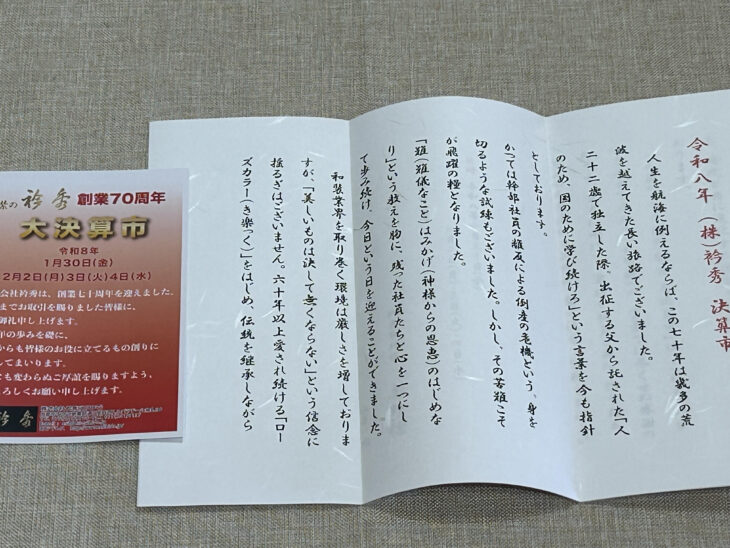 令和八年 (株)衿秀 決算市
人生を航海に例えるならば、この七十年は幾多の荒
波を越えてきた長い旅路でございました。
二十二歳で独立した際、出征する父から託された「人
のため、国のために学び続けろ」という言葉を今も指針
としております。
かつては幹部社員の謀反による倒産の危機という、身を
切るような試練もございました。しかし、その苦難こそ
が飛躍の糧となりました。
「難(難儀なこと)はみかげ(神様からの恩恵)のはじめな
り」という教えを胸に、残った社員たちと心を一つにし
て歩み続け、今日という日を迎えることができました。
和装業界を取り巻く環境は厳しさを増しておりま
すが、「美しいものは決して無くならない」という信念に
揺るぎはございません。六十年以上愛され続ける「ロー
ズカラー(き楽っく)」をはじめ、伝統を継承しながら
衿秀 創業70周年
大決算市
令和8年
1月30日(金)
2月2日(月)3日(火)4日(水)
会社衿秀は、創業七十周年を迎えました。
までお取引を賜りました皆様に、
御礼申し上げます。
年の歩みを礎に、
からも皆様のお役に立てるもの創りに
してまいります。
も変わらぬご厚誼を賜りますよう、
ろしくお願い申し上げます。
衿秀